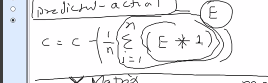 predicted - actual E
C = C - (1/n (∑ i=1 n (E * 1)))
Matrix